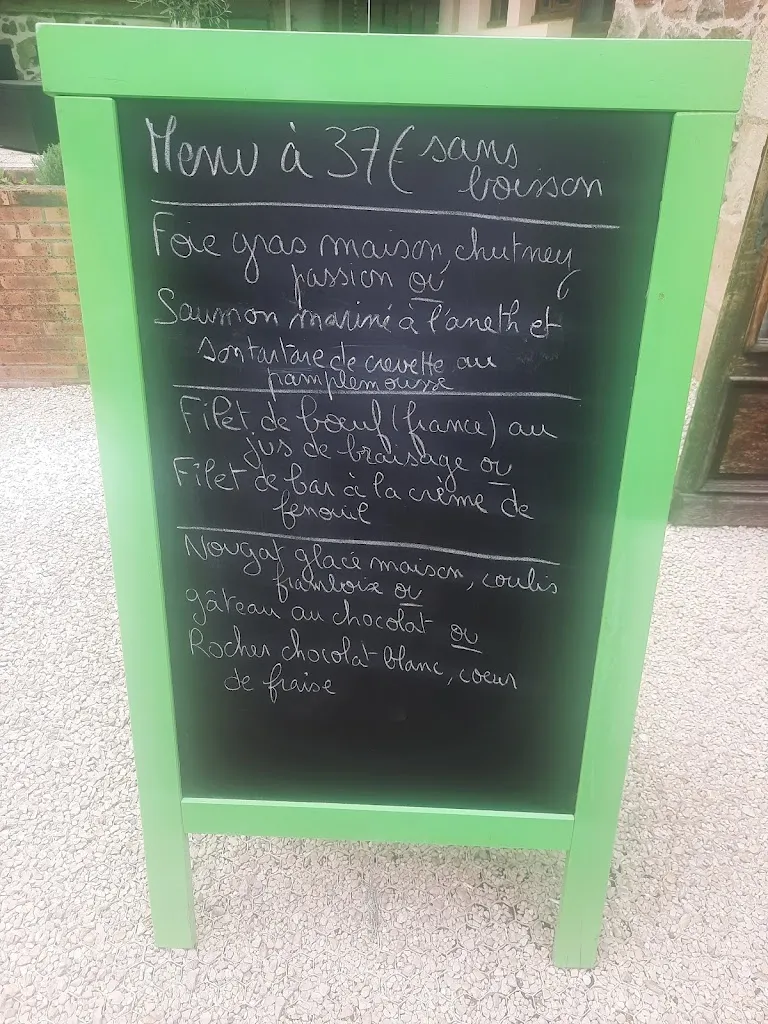 Menu à 37€ sans
boisson
Foie gras maison, chutney
passion ou
Saumon mariné à l'aneth et
son tartare de crevette au
pamplemousse
Filet de bœuf (france) au
jus de braisage ou
Filet de bar à la crème de
fenouil
Nougat glacé maison, coulis
framboise ou
gâteau au chocolat ou
Rocher chocolat blanc, coeur
de fraise